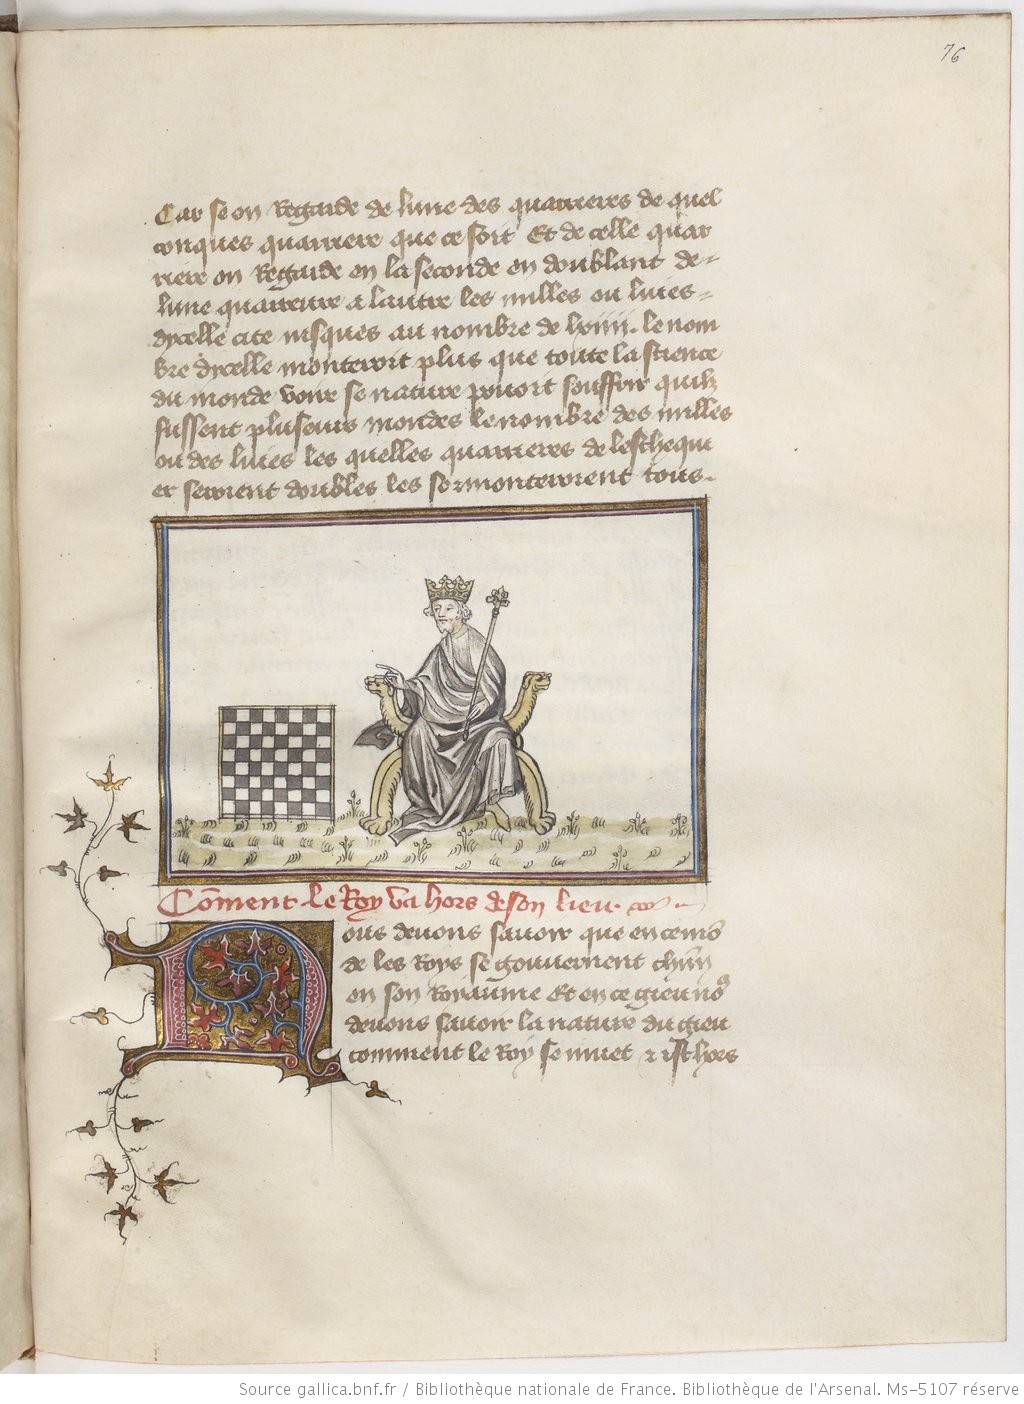 76
Car se on Regarde de lune des quarrieres de quel
conques quarriere que ce soit Et de celle quar
riere on Regarde en la seconde en doublant de=
lune quarreure a lautre les milles ou lutes=
dycelle cite iusques au nombre de lxiiii. le nom
bre dycelle monteroit plus que toute la science
du monde voire se nature pouoit souffrir quilz
fussent pluseurs mondes le nombre des milles
ou des lutes les quelles quarrieres de lesthequi
er seroient doubles les sormonteroient tous.
Cōment le Roy va hors de son lieu
Nous deuons sauoir que en
de les Roys se gouuernent
en son Royaume Et en ce gieu
deuons sauoir la nature du gieu
comment le Roy se muet & ist hors
Source gallica.bnf.fr / Bibliothèque nationale de France. Bibliothèque de l'Arsenal. Ms-5107 réserve